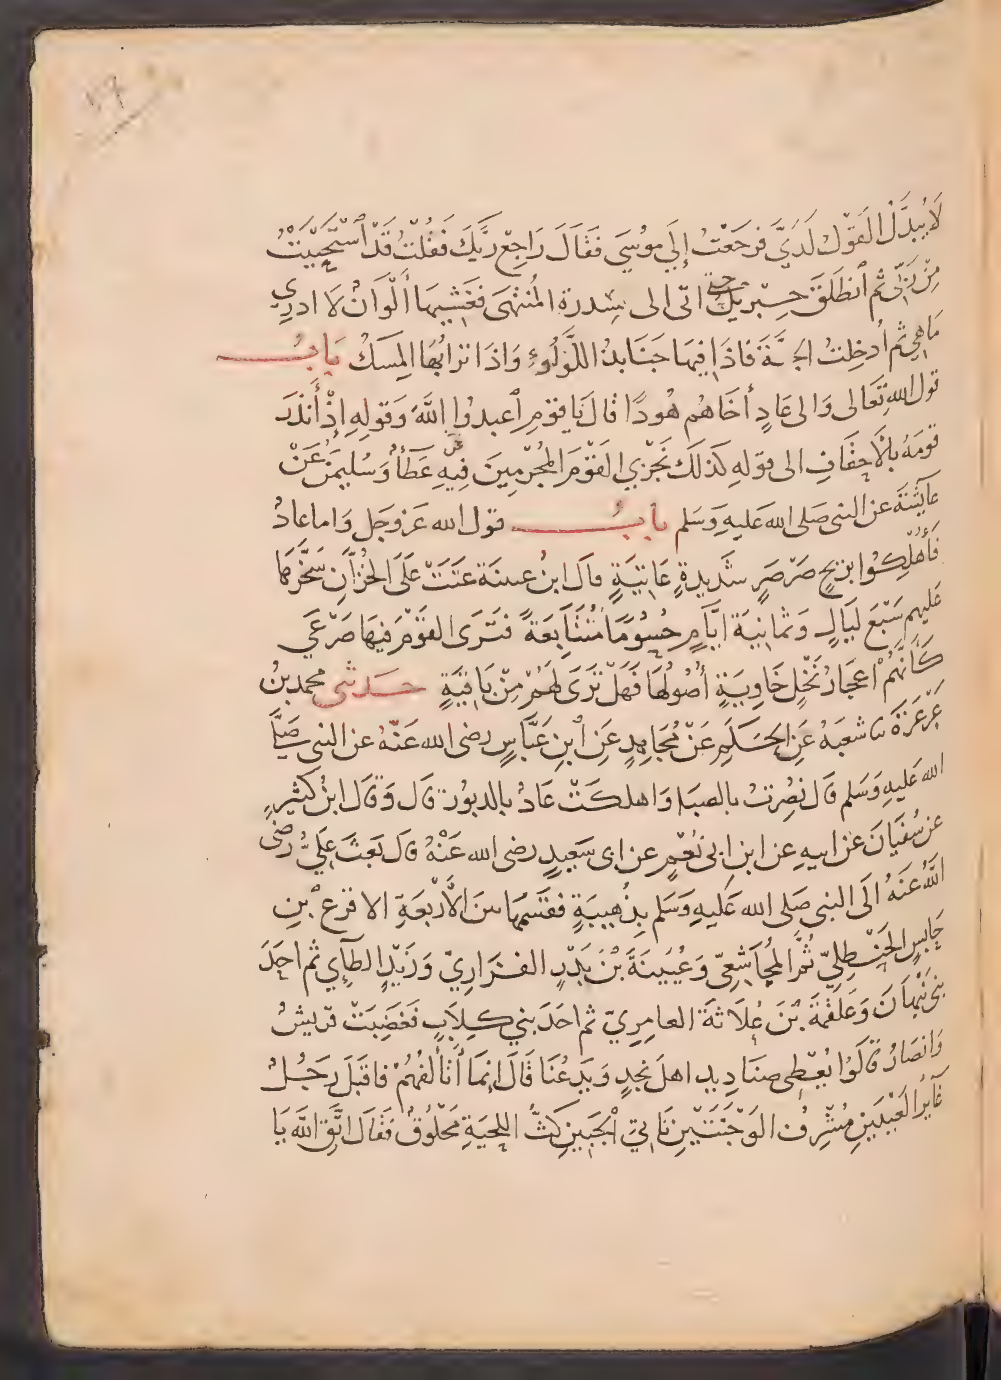 ١١٦
لَا يُبَدَّلُ الْقَوْلُ لَدَيَّ فَرَجَعْتُ إِلَى مُوسَى فَقَالَ رَاجِعْ رَبَّكَ فَقُلْتُ قَدْ اسْتَحْيَيْتُ
مِنْ رَبِّي ثُمَّ انْطَلَقَ جِبْرِيلُ حتى اتى الى سِدرة المُنْتَهَى فَغَشِيَهَا أَلْوَانٌ لَا ادرِي
مَا هِيَ ثُمَّ أُدخِلتُ الجَنَّةَ فَاذَا فِيهَا جَنَابِذُ اللُّؤْلُؤِ وَاذَا تُرَابُهَا المِسكُ بَابُ
قول الله تَعَالى وَالى عَادٍ أَخَاهُم هُودًا قَالَ يَا قَومِ اعبدُوا اللَّهَ وَقولِهِ إِذْ أَنْذَرَ
قَومَهُ بِالْأَحقَافِ الى قولِهِ كَذلكَ نَجْزِي القَوْمَ المُجْرِمِينَ فِيهِ عَنْ عَطَاءٍ وَسُلَيمٰنَ عَنْ
عَائِشَةَ عن النبي صَلى الله عَليهِ وَسَلم بابُ قول الله عَزوجَل وَاما عَادٌ
فَأُهْلِكُوا بِرِيحٍ صَرْصَرٍ شَدِيدةٍ عَاتِيَةٍ قال ابنُ عيينة عَتَتْ عَلَى الخُزَّانِ سَخَّرَهَا
عَليهم سَبْعَ لَيَالٍ وَثمانِيةَ ايَّامٍ حُسُومًا مُتَتَابِعَةً فَتَرَى القَوْمَ فيهَا صَرْعَى
كَأَنَّهُمْ اعجَازُ نَخْلٍ خَاوِيَةٍ أُصُولُهَا فَهَلْ تَرَى لَهُمْ مِنْ بَاقِيَةٍ حَدثنى محمد بنُ
عَرْعَرَةَ نا شعبَةُ عَنِ الحَكَمِ عَنْ مُجَاهِدٍ عَنِ ابْنِ عَبَّاسٍ رضى الله عَنْهُ عن النبي صَلَّى
الله عَليهِ وَسَلم قَالَ نُصِرتُ بالصبَا وَاهلكَتْ عَادٌ بالدبور قَال وَقَال ابنُ كَثِيرٍ
عن سُفيَانَ عَن ابيهِ عن ابن ابي نُعْمٍ عن ابى سَعِيدٍ رضى الله عَنْهُ قَال بَعَثَ عَلِيٌّ رضى
اللَّهُ عَنهُ الَى النبي صَلى الله عَليهِ وَسَلم بِذُهَيبَةٍ فقَسَمهَا بين الأَرْبَعَةِ الاقرعِ بْنِ
حَابِسٍ الحَنْظلِيِّ ثُمَّ المُجَاشِعِيِّ وَعُيَيْنَةَ بْنِ بَدْرٍ الفَزَارِيِّ وَزَيْدٍ الطَّائِي ثم احَدَ
بَني نَبْهَانَ وَعَلقَمَةَ بْنَ عُلَاثَةَ العامِرِيِّ ثم احَدَ بَني كِلَابٍ فَغَضِبَتْ قريشٌ
وَانصَارٌ قَالَوُا يُعْطِى صنَادِيد اهلَ نَجدٍ وَيَدعُنَا قَالَ إِنمَا أَتَأَلفُهُمْ فاقبَلَ رَجُلٌ
غَايرُ العَيْنَينِ مُشْرِفُ الوَجْنَتَيْنِ نَاتِئ الجَبينِ كَثُّ اللحيَةِ مَحْلُوقٌ فَقَالَ اتَّقِ اللهَ يَا